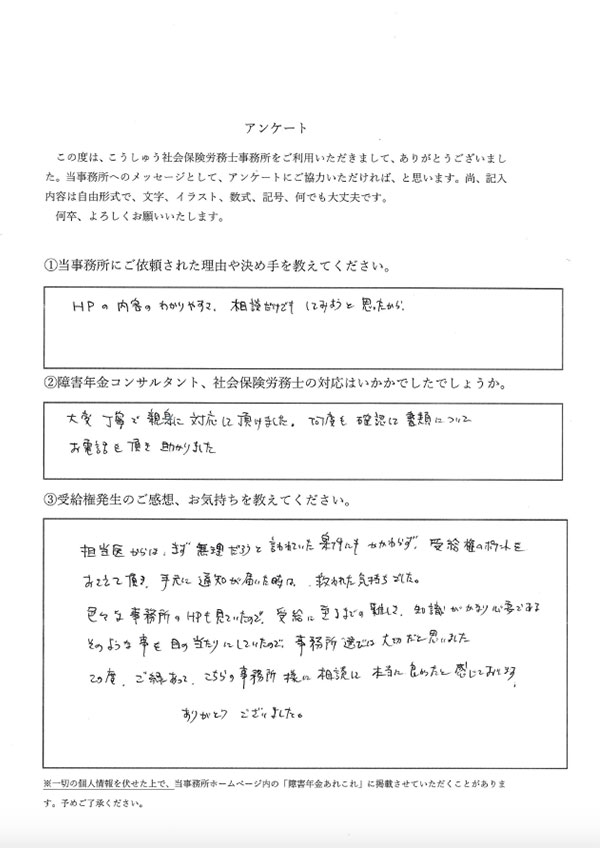 アンケート
この度は、こうしゅう社会保険労務士事務所をご利用いただきまして、ありがとうございまし
た。当事務所へのメッセージとして、アンケートにご協力いただければ、と思います。尚、記入
内容は自由形式で、文字、イラスト、数式、記号、何でも大丈夫です。
何卒、よろしくお願いいたします。
①当事務所にご依頼された理由や決め手を教えてください。
HPの内容のわかりやすさ、相談だけでもしてみようと思ったから、
②障害年金コンサルタント、社会保険労務士の対応はいかかでしたでしょうか。
大変丁寧で親身に対応して頂けました。何度も確認し書類について
お電話を頂き助かりました
③受給権発生のご感想、お気持ちを教えてください。
担当医からは、まず無理だろうと言われていたにもかかわらず、受給権のポイントを
おさえて頂き、手元に通知が届いた時は、救われた気持ちでした。
色々な事務所のHPも見ていたので、受給に至るまでの難しさ、知識がかなり必要である
そのような事を目の当たりにしていたので、事務所選びは大切だと思いました
この度、ご縁あって、こちらの事務所様に相談し本当に良かったと感じております。
ありがとうございました。
※一切の個人情報を伏せた上で、当事務所ホームページ内の「障害年金あれこれ」に掲載させていただくことがありま
す。予めご了承ください。